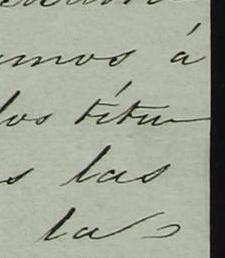 umos á
los títu
s las
la